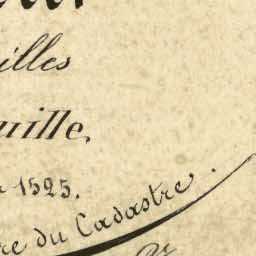 illes
uille,
1525.
re du Cadastre.